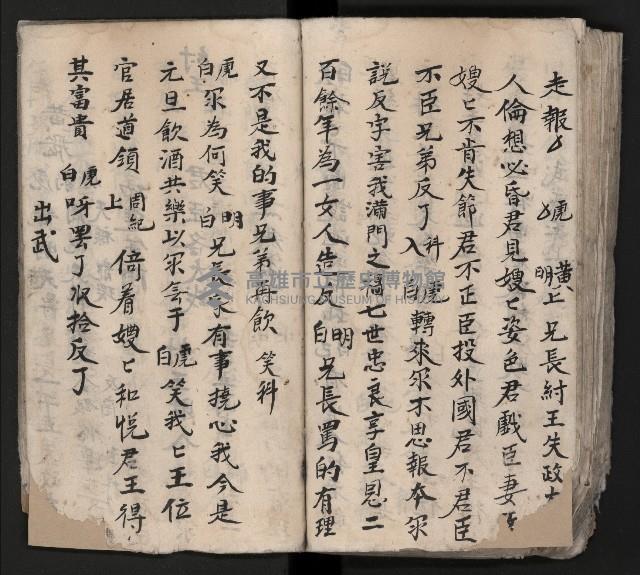 走報 虎 黃明上 兄長紂王失政
人倫想必昏君見嫂〻姿色君戲臣妻
嫂〻不肯失節君不正臣投外國君不君臣
不臣兄弟反了 入科 虎白 轉來尔不思報本尔
說反字害我滿門之禍七世忠良享皇恩二
百餘年為一女人告反 明白 兄長罵的有理
又不是我的事兄弟再飲 笑科
虎白 尔為何笑 明白 兄尔家有事撓心我今是
元旦飲酒共樂以尔無于 虎白 笑我〻王位
官居道領 周紀上 倚着嫂〻和悅君王得
其富貴 虎白 呀罷了收拾反了
出武
高雄市立歷史博物館
KAOHSIUNG MUSEUM OF HISTORY